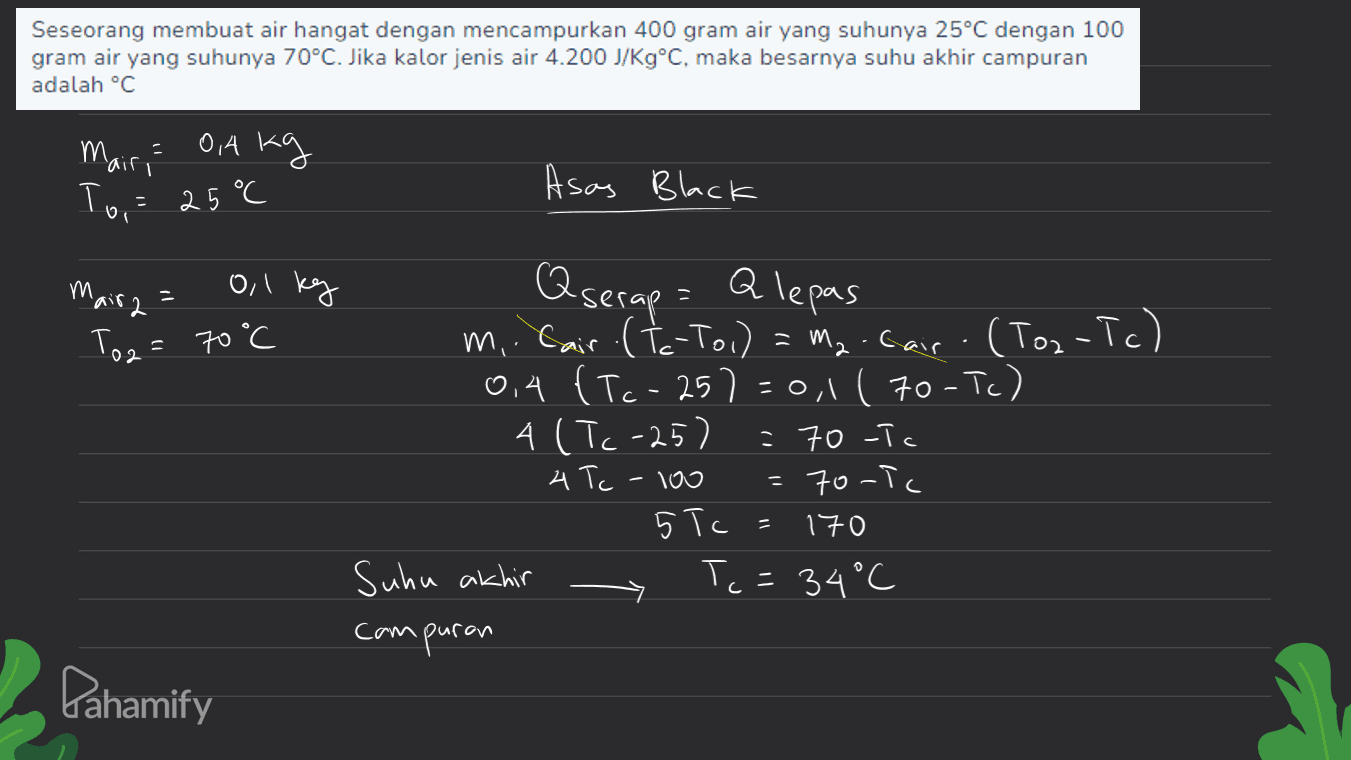 Seseorang membuat air hangat dengan mencampurkan 400 gram air yang suhunya 25°C dengan 100
gram air yang suhunya 70°C. Jika kalor jenis air 4.200 J/Kg°C, maka besarnya suhu akhir campuran
adalah °C
Mair₁ = 0,4 kg
T₀₁ = 25 °C
Asas Black
Mair₂ = 0,1 kg
T₀₂ = 70 °C
Qserap = Q lepas
m₁ · Cair · (Tc - T₀₁) = m₂ · Cair · (T₀₂ - Tc)
0,4 (Tc - 25) = 0,1 (70 - Tc)
4 (Tc - 25) = 70 - Tc
4 Tc - 100 = 70 - Tc
5 Tc = 170
Suhu akhir → Tc = 34 °C
campuran
Pahamify